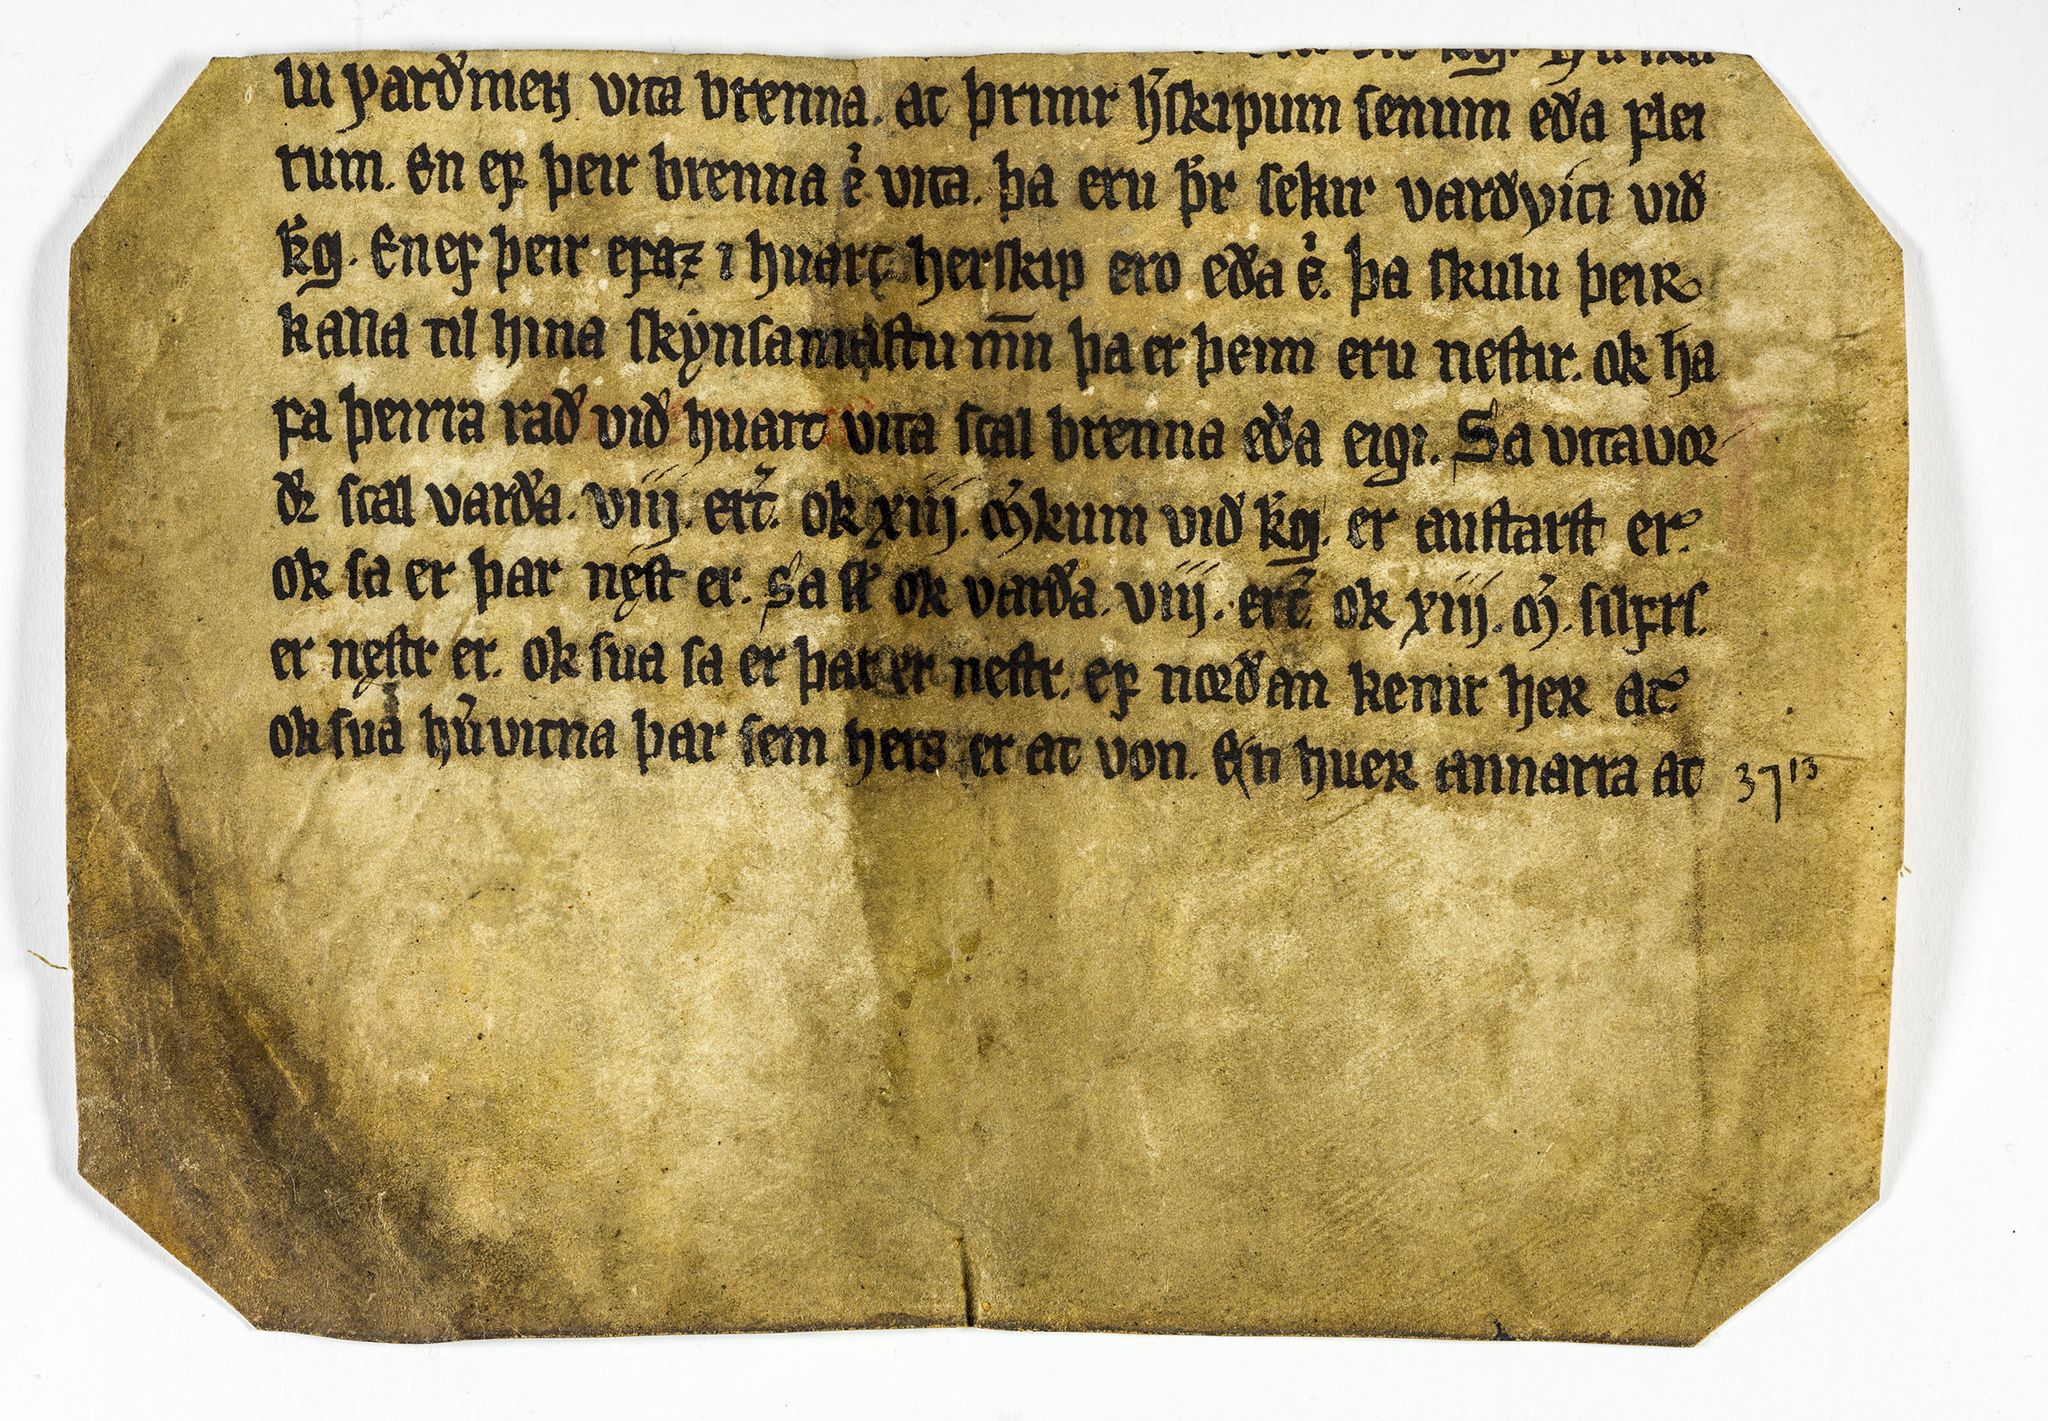 lu varðmenn vita brenna. at þrimr h̛skipum senum eða flei
rum. En ef þeir brenna e̛ vita. þa eru þr̛ sekir varðviti við
kg̛. En ef þeir efaz i huart herskip ero eða e̛. þa skulu þeir
kalla til hina skẏnsamastu m̅n þa er þeim eru nestir. ok ha
fa þeirra rað við huart vita scal brenna eða eigi. Sa vitavor
ðr scal varða. viij. ert̛. ok xiij. m̛kum við kg̛. er austarst er.
ok sa er þar nęst er. Sa sk̛ ok varða. viij. ert̛. ok xiij. m̛. silfrs.
er nęstr er. ok sua sa er þar er nestr. ef norðan kemr her at.
ok sua hưvitna þar sem hers er at von. En huer annarra at
3713